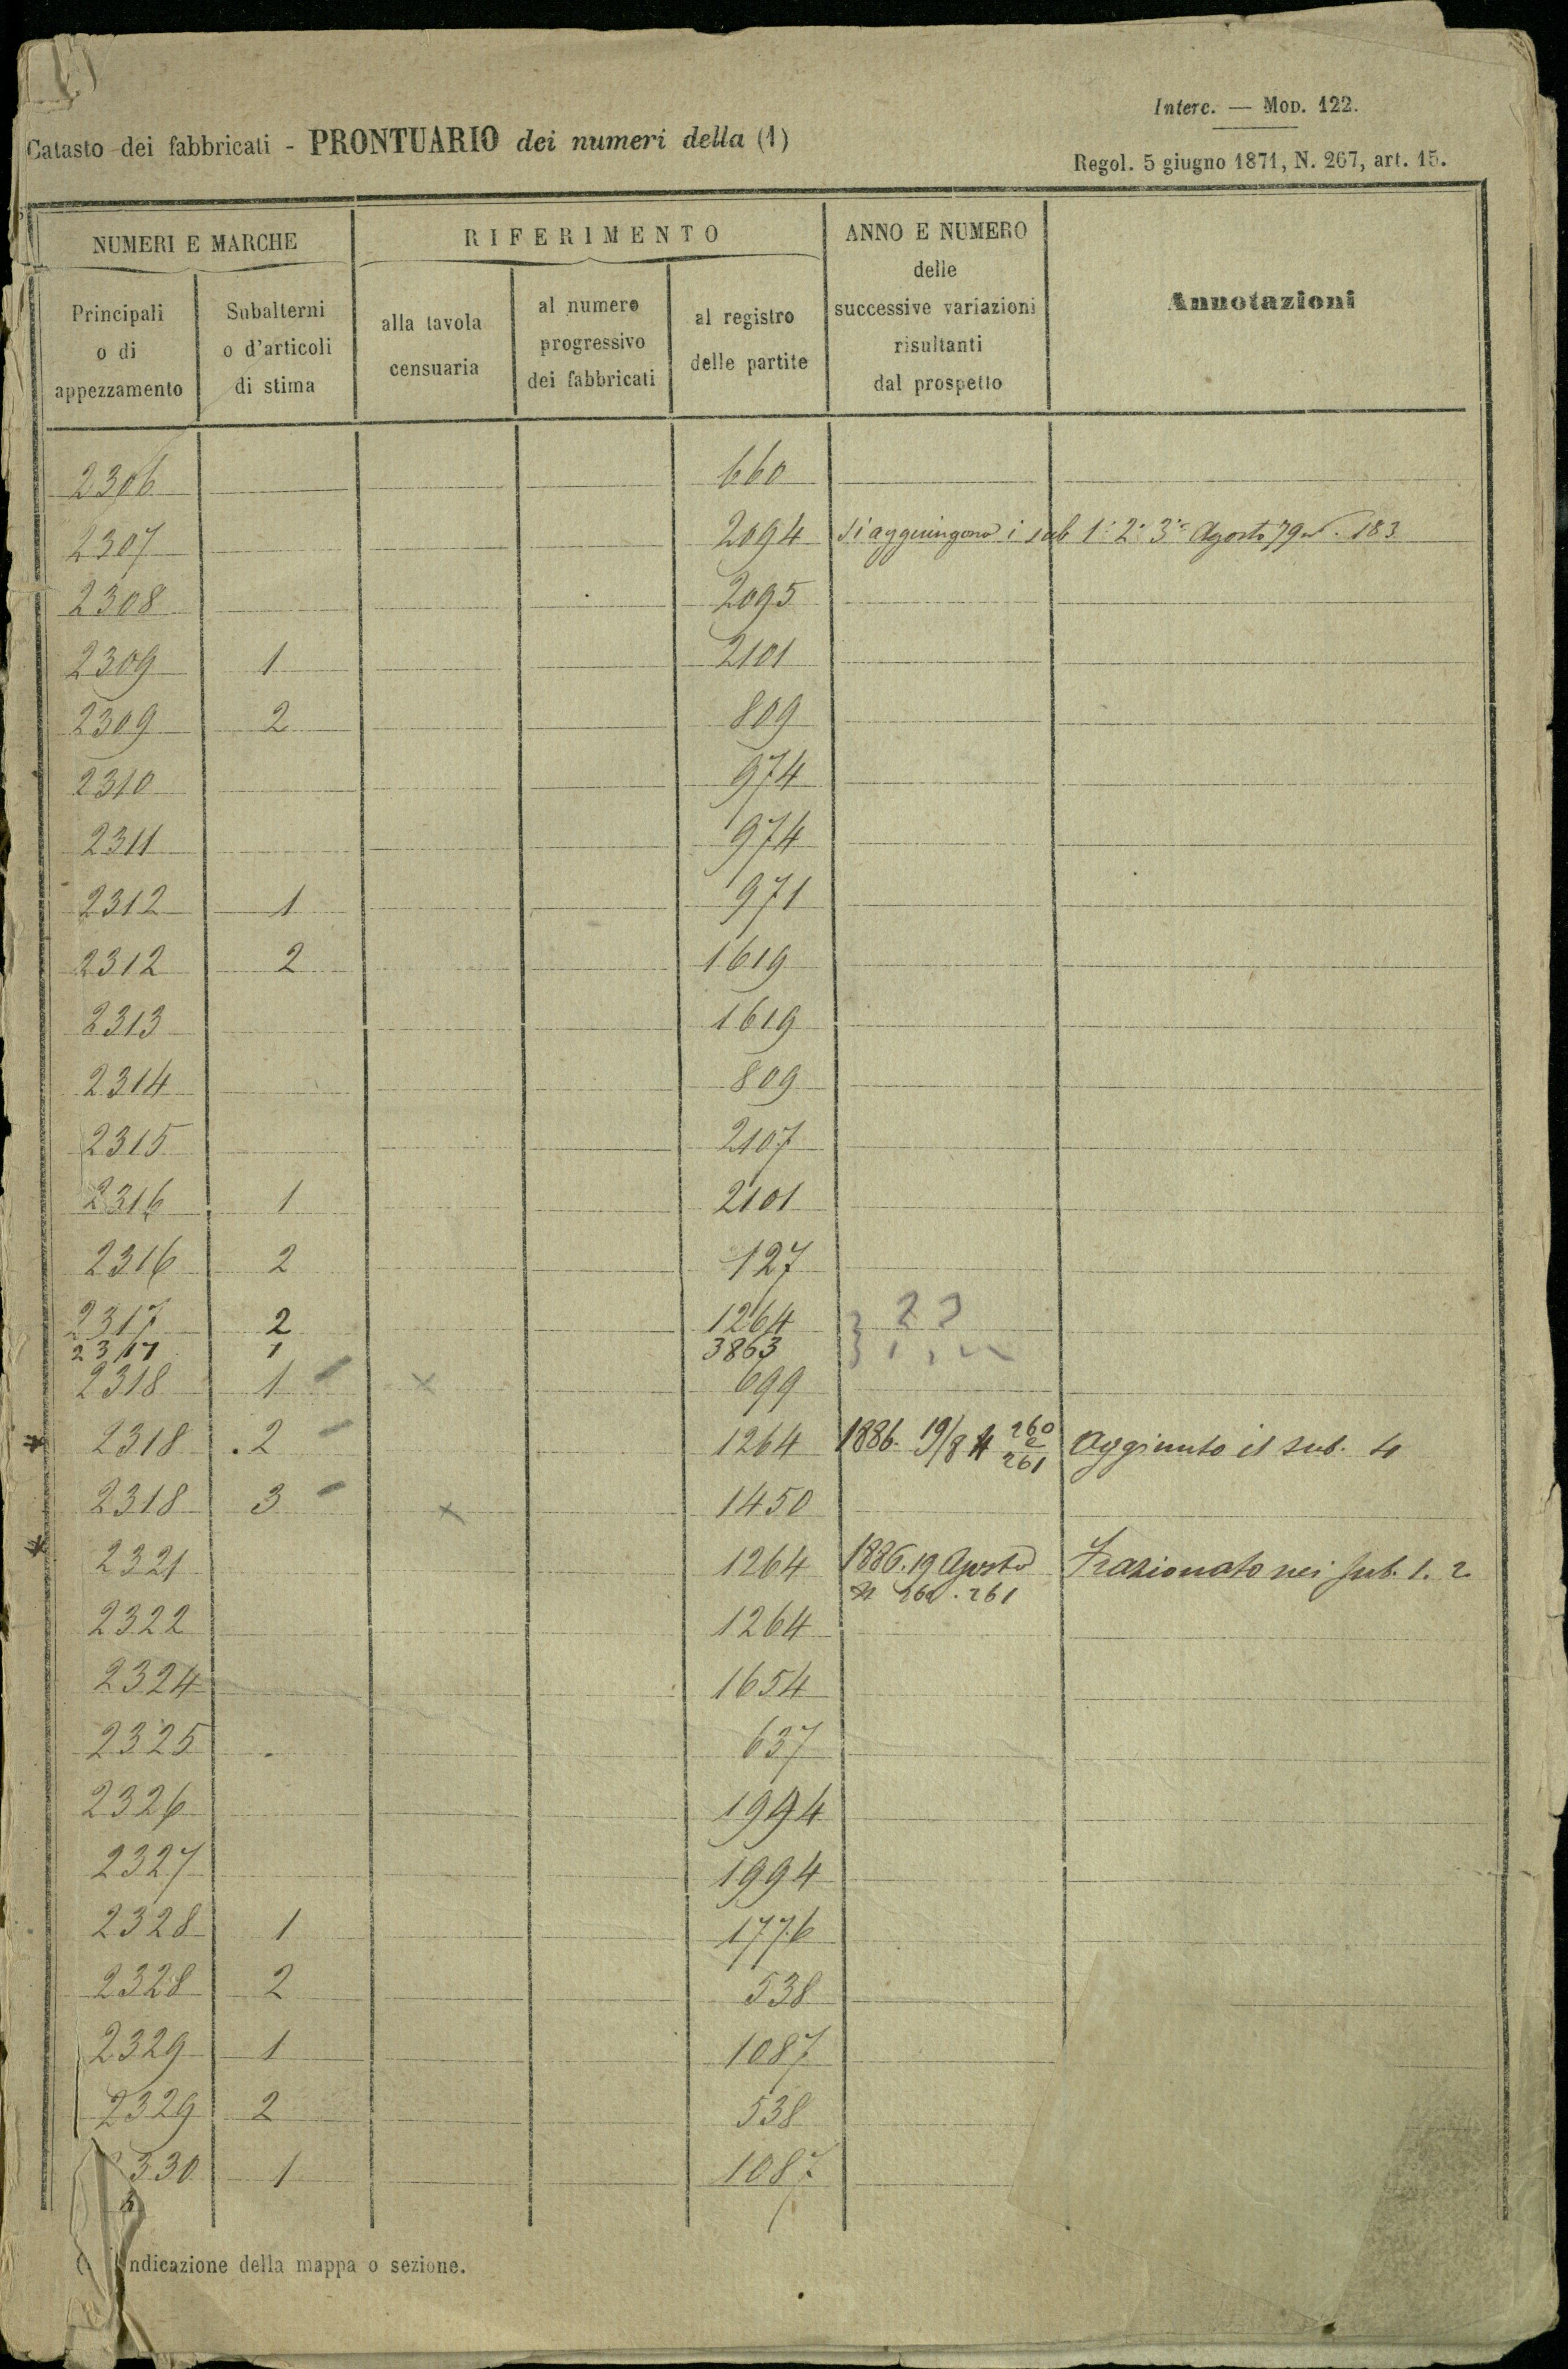 Interc. — Mod. 122.
Catasto dei fabbricati - PRONTUARIO dei numeri della (1)
Regol. 5 giugno 1871, N. 267, art. 15.
NUMERI E MARCHE
RIFERIMENTO
ANNO E NUMERO delle successive variazioni risultanti dal prospetto
Annotazioni
Principali o di appezzamento
Subalterni o d'articoli di stima
alla tavola censuaria
al numero progressivo dei fabbricati
al registro delle partite
2306 660
2307 2094 Si aggiungono i sub 1° 2° 3° Agosto 79 N. 183
2308 2095
2309 1 2101
2309 2 809
2310 974
2311 974
2312 1 971
2312 2 1619
2313 1619
2314 809
2315 2107
2316 1 2101
2316 2 127
2317 2 1264
2317 1 3863
2318 1 x 699
* 2318 .2 1264 1886. 19/8 N 260 e 261 Aggiunto il sub. 4
2318 3 x 1450
* 2321 1264 1886. 19 Agosto Frazionato nei sub. 1. 2
N 260. 261
2322 1264
2324 1654
2325 637
2326 1994
2327 1994
2328 1 1776
2328 2 538
2329 1 1087
2329 2 538
330 1 1087
ndicazione della mappa o sezione.